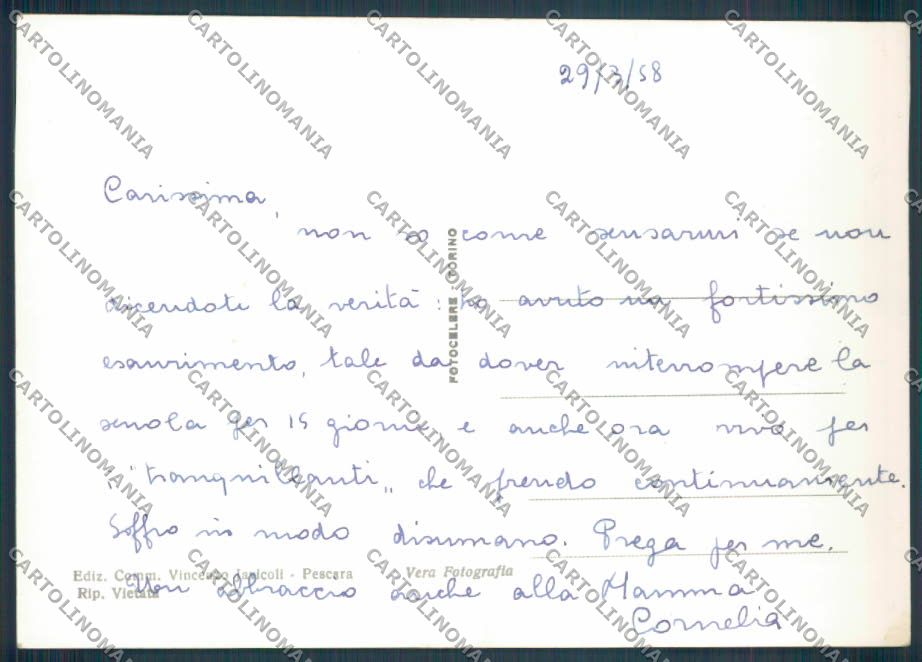 29/3/58
Carissima,
non so come scusarmi se non
dicendoti la verità: ho avuto un fortissimo
esaurimento, tale da dover interrompere la
scuola per 15 giorni e anche ora vivo per
i "tranquillanti" che prendo continuamente.
Soffro in modo disumano. Prega per me.
Un abbraccio anche alla Mamma
Cornelia
FOTOCELERE - TORINO
Ediz. Comm. Vincenzo Ianicoli - Pescara
Rip. Vietata
Vera Fotografia
CARTOLINOMANIA